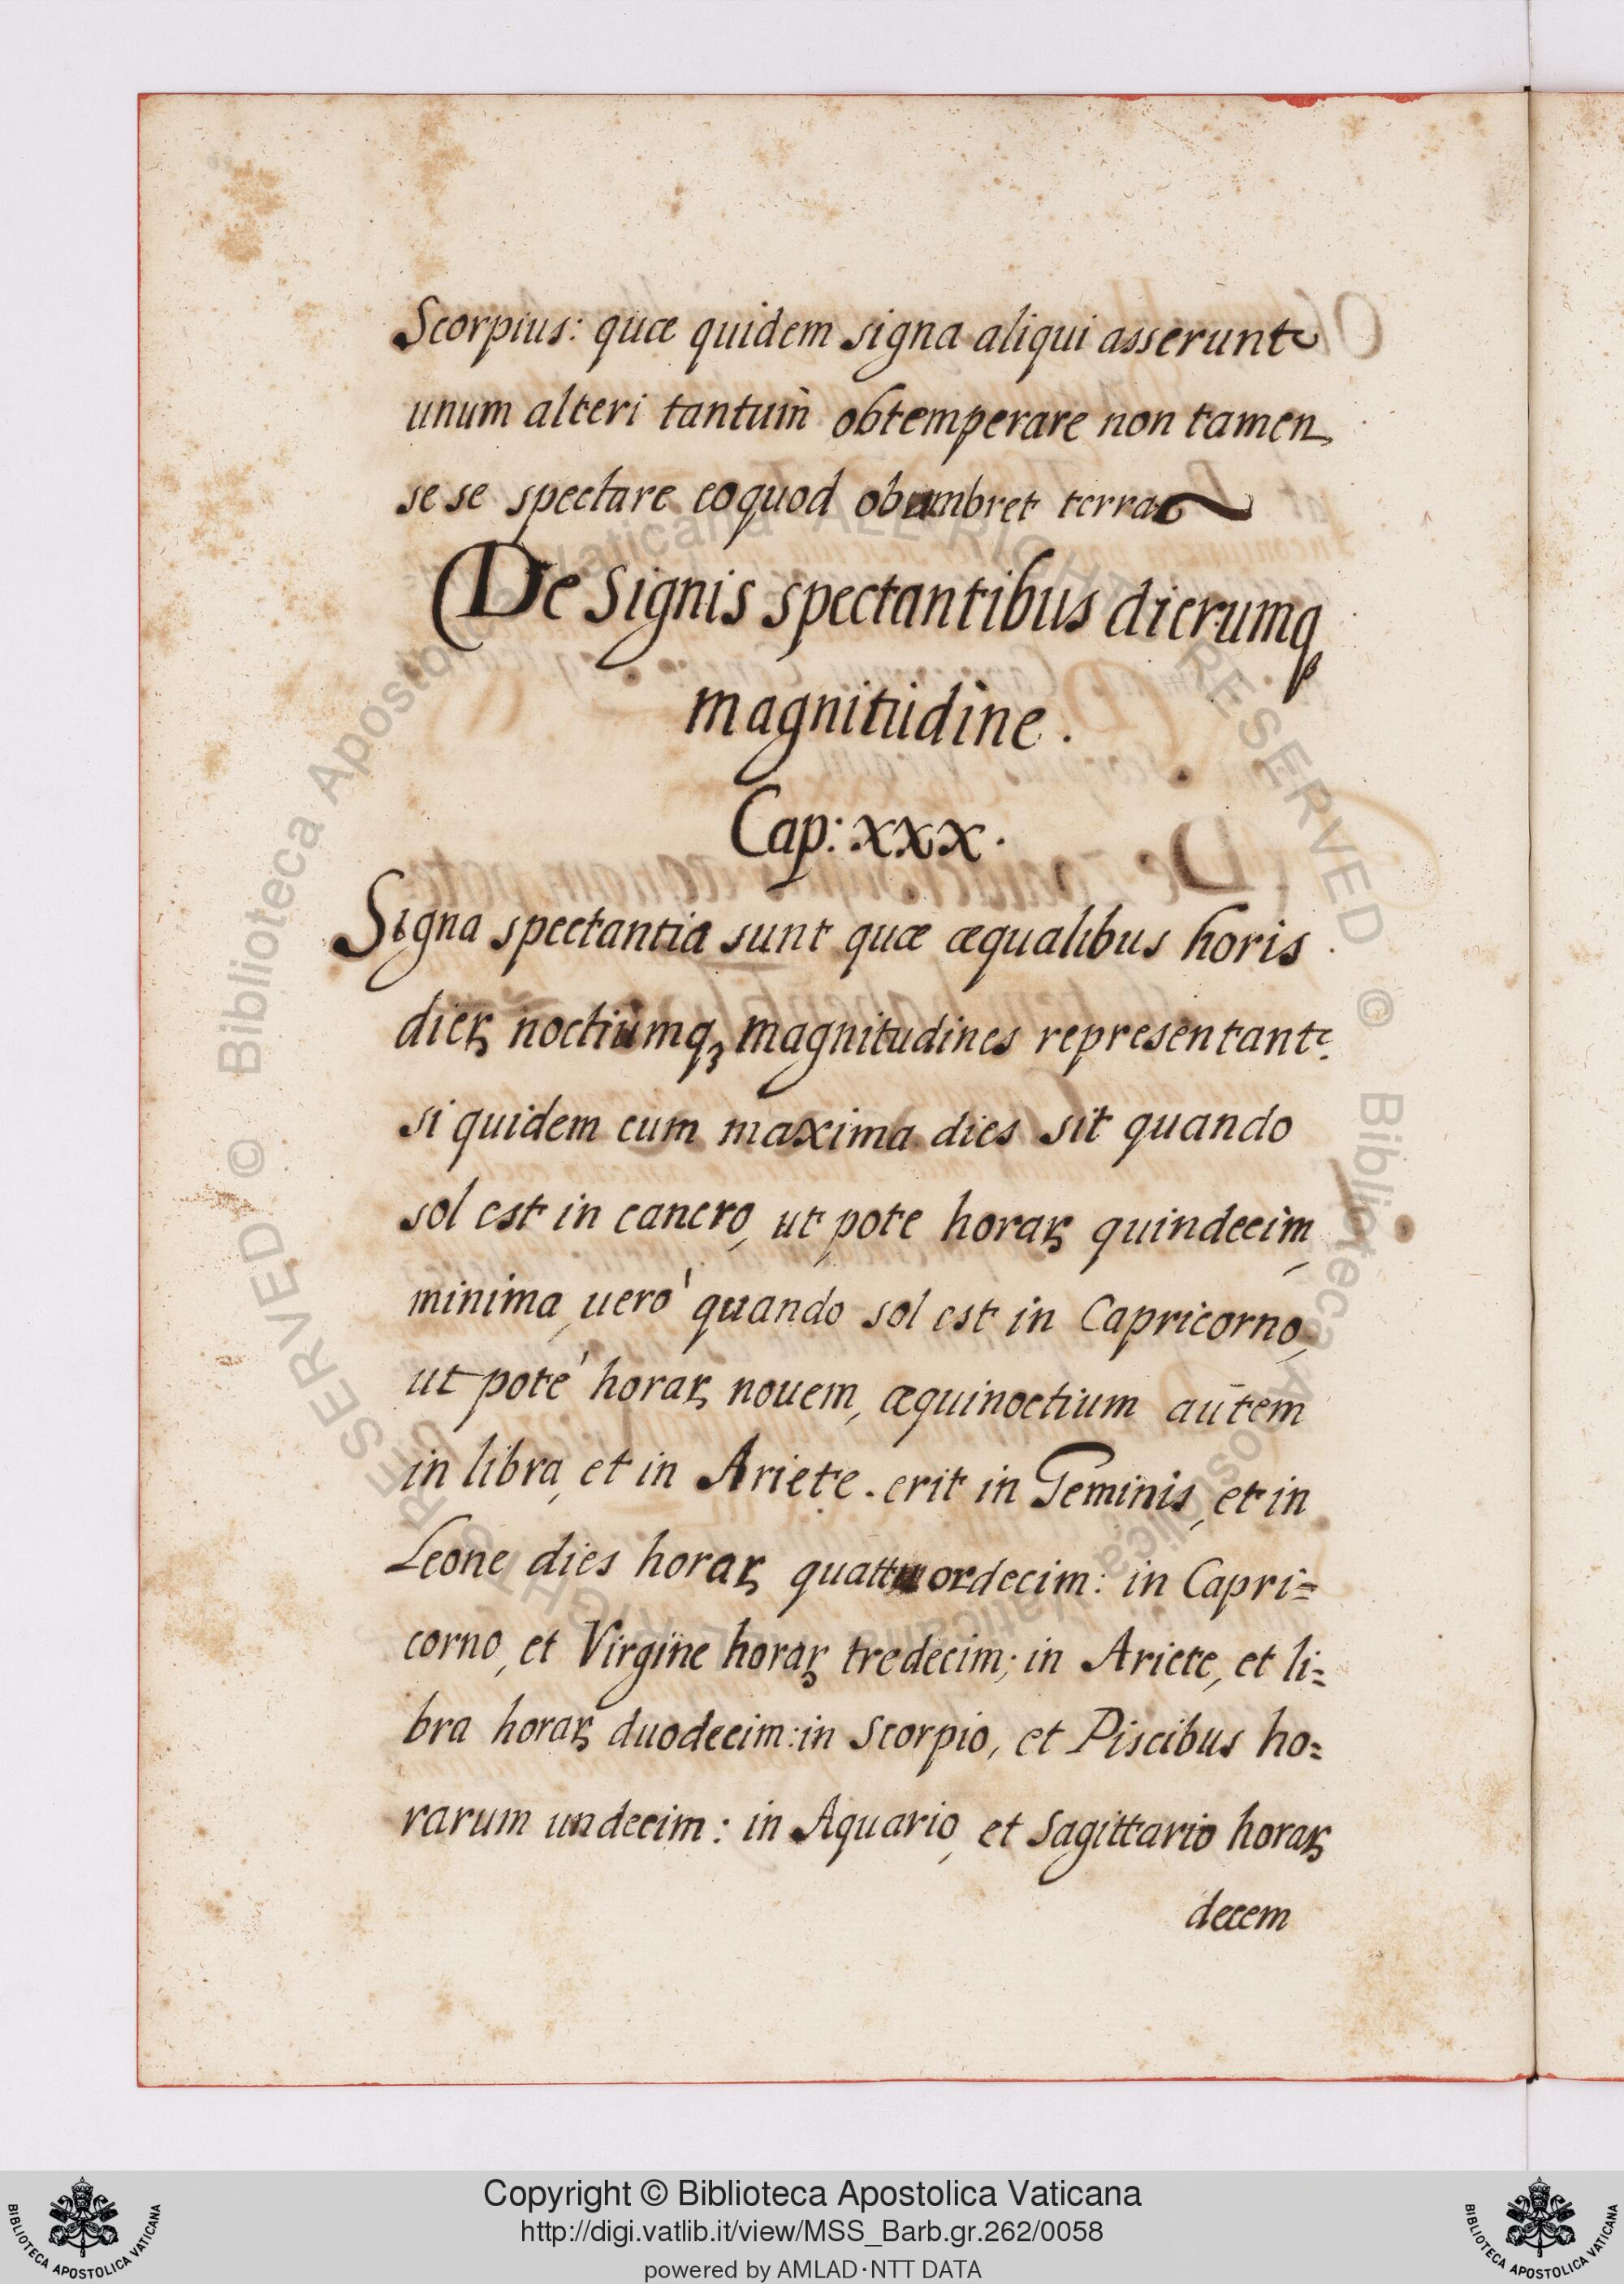 Scorpius: quæ quidem signa aliqui asserunt
unum alteri tantum̄ obtemperare non tamen
se se spectare eo quod obumbret terra
De signis spectantibus dierumqꝫ
magnitudine.
Cap: xxx.
Signa spectantia sunt quæ æqualibus horis
dieꝝ noctiumqꝫ magnitudines representant.
si quidem cum maxima dies sit quando
sol est in cancro, ut pote horaꝝ quindecim,
minima, uerò quando sol est in Capricorno,
ut potè horaꝝ nouem, æquinoctium aūtem
in libra, et in Ariete. erit in Geminis, et in
Leone dies horaꝝ quattuordecim: in Capri=
corno, et Virgine horaꝝ tredecim; in Ariete, et li=
bra horaꝝ duodecim: in Scorpio, et Piscibus ho=
rarum undecim: in Aquario, et Sagittario horaꝝ
decem
Copyright © Biblioteca Apostolica Vaticana
http://digi.vatlib.it/view/MSS_Barb.gr.262/0058
powered by AMLAD·NTT DATA
BIBLIOTECA APOSTOLICA VATICANA
BIBLIOTECA APOSTOLICA VATICANA